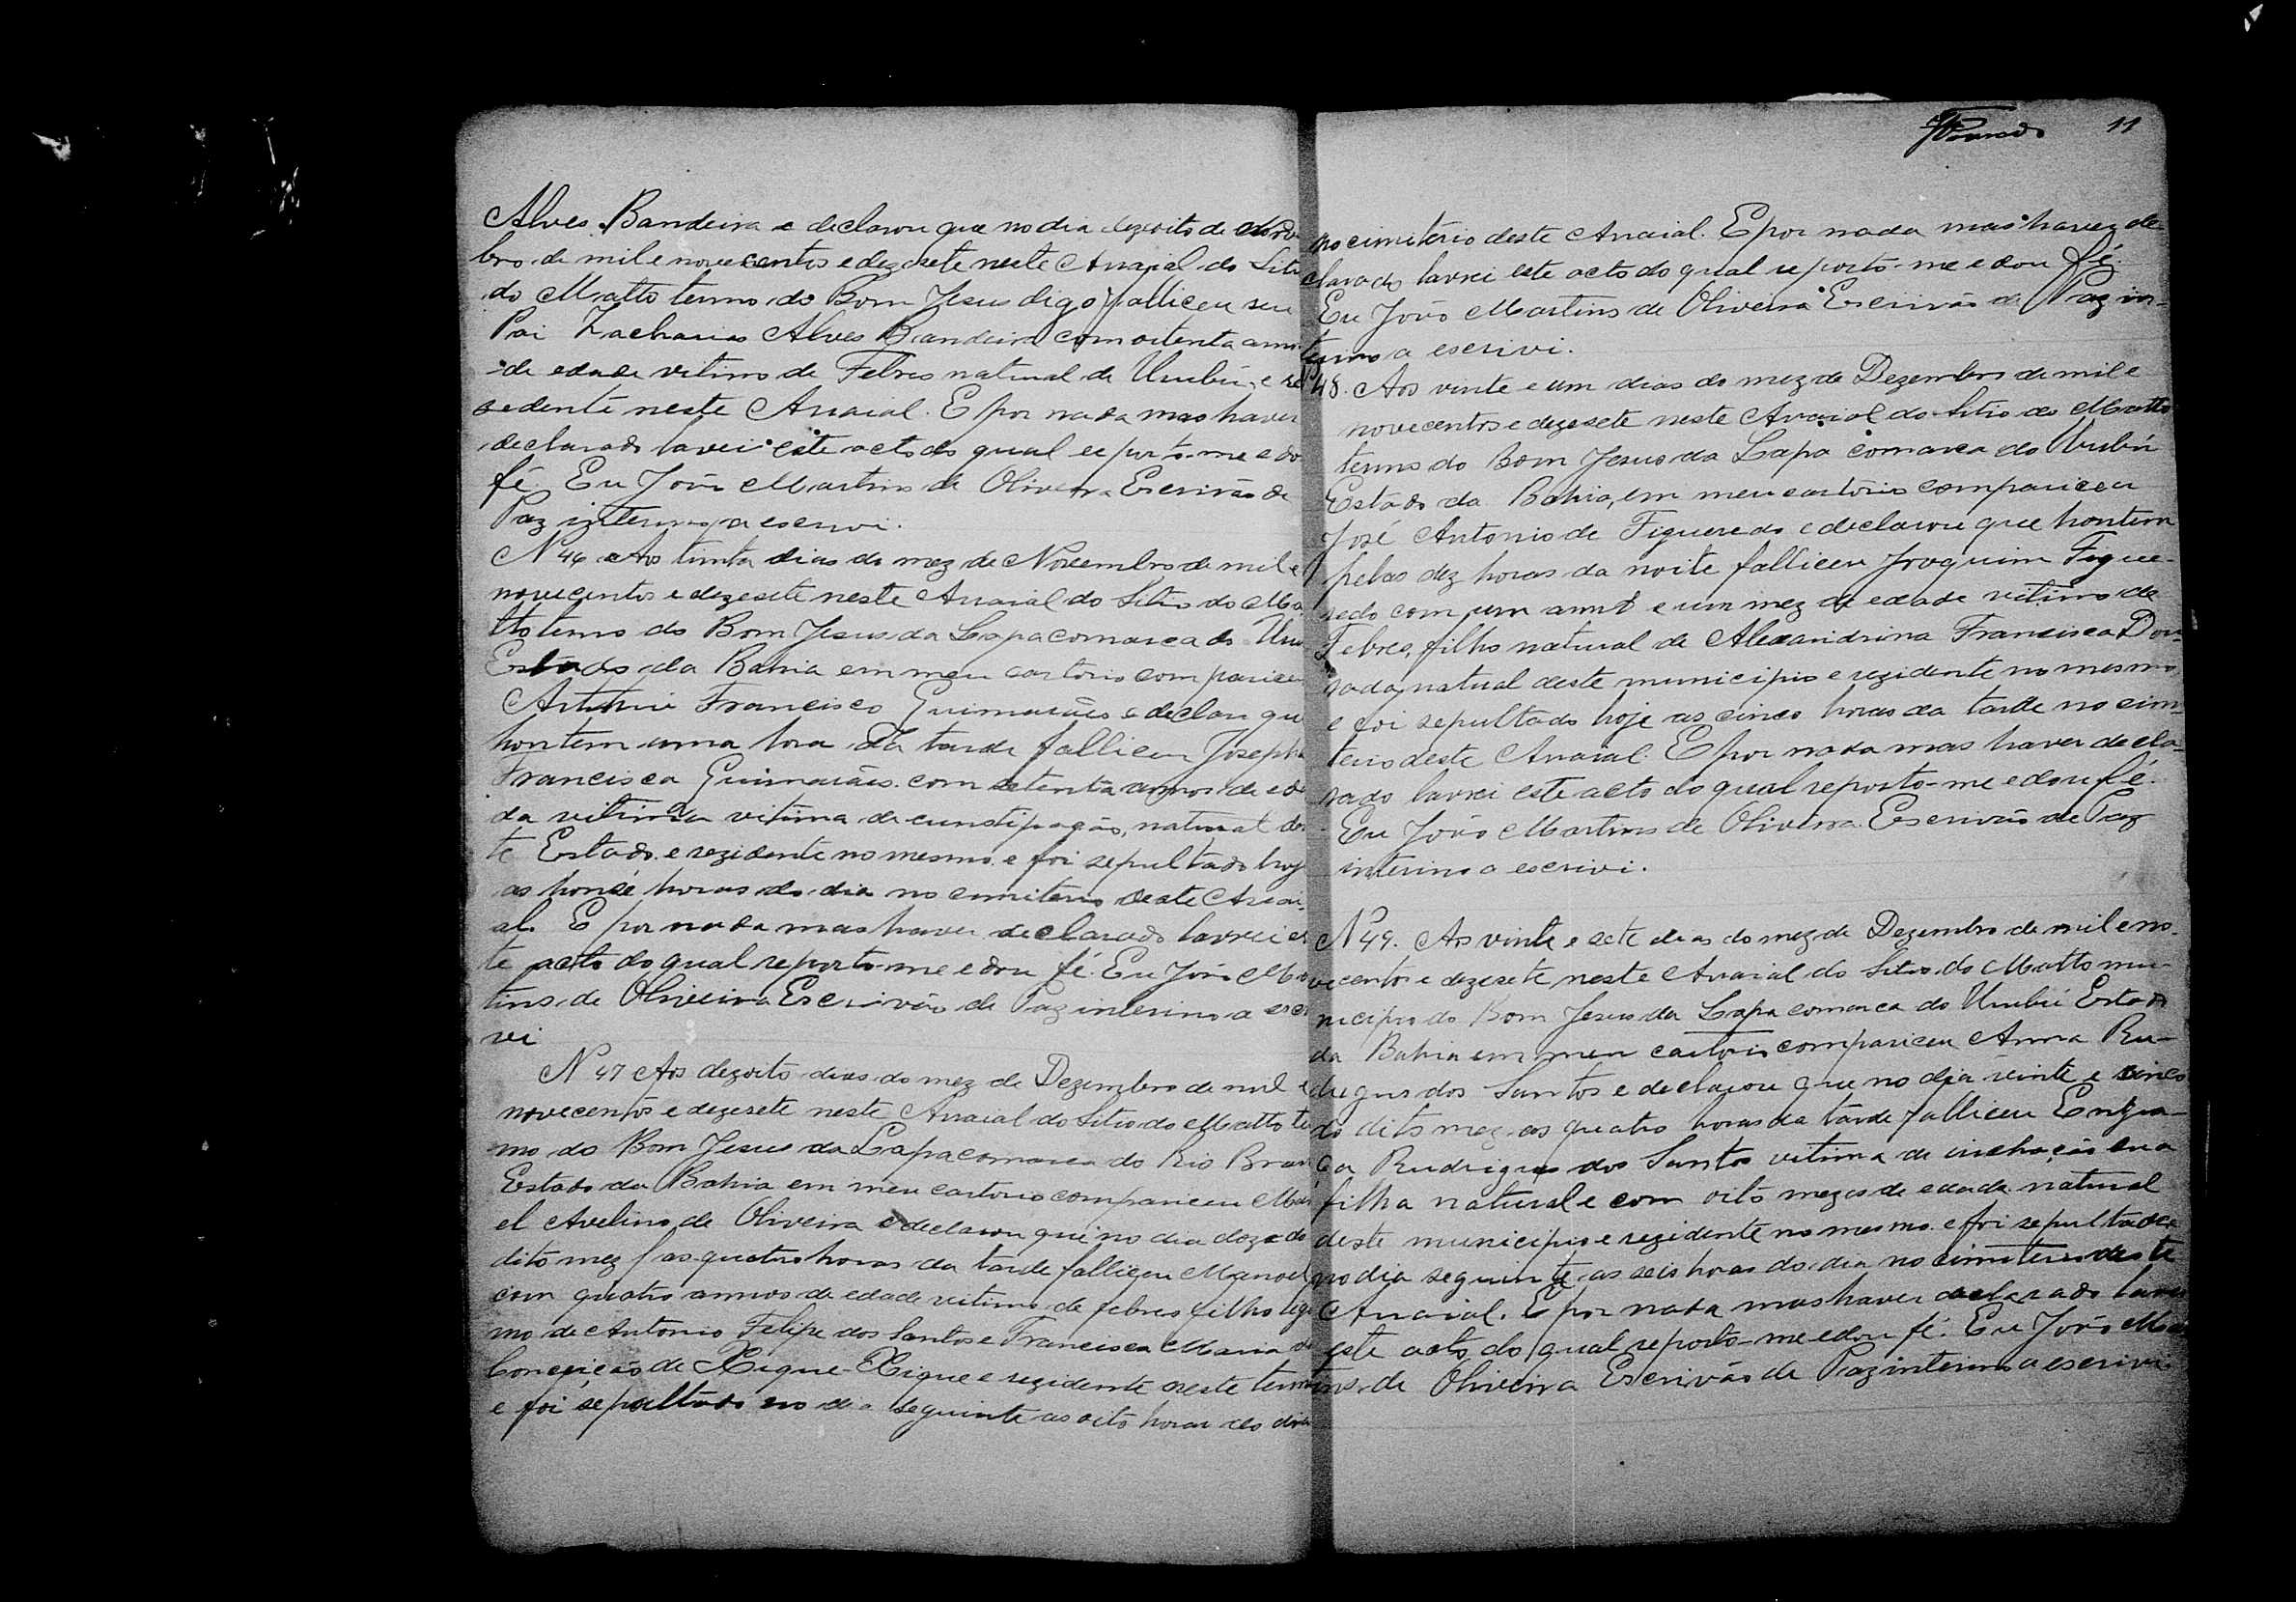 Alves Bandeira e declarou que no dia dezoito de
bro de mil e novecentos e dezesete neste Arraial do Sitio
do Matto termo do Bom Jesus digo falliceu seu
Pai Zacharias Alves Bandeira com oitenta annos
de edade vitimo de Febres natural de Urubú, e re
sedente neste Arraial. E por nada mas haver
declarado lavrei este acto do qual reporto-me e dou
fé. Eu João Martins de Oliveira Escrivão de
Paz interino a escrevi.
N 46 Aos trinta dias do mez de Novembro de mil e
novecentos e dezesete neste Arraial do Sitio do Ma
tto termo do Bom Jesus da Lapa comarca do Uru
Estado da Bahia em meu cartorio compariceu
Francisco Guimarães e declarou que
hontem uma hora da tarde falliceu Josepha
Francisca Guimarães com setenta annos de eda
da vitima de cunstipação, natural des
te Estado e rezidente no mesmo e foi sepultado hoje
as honse horas do dia no cimiterio deste Arrai
al. E por nada mas haver declarado lavrei es
te acto do qual reporto-me e dou fé. Eu João Mar
tins de Oliveira Escrivão de Paz interino a escri
vi
N 47 Aos dezoito dias do mez de Dezembro de mil e
novecentos e dezesete neste Arraial do Sitio do Matto ter
mo do Bom Jesus da Lapa comarca do Rio Bran
Estado da Bahia em meu cartorio compariceu
el Avelino de Oliveira e declarou que no dia doze do
dito mez as quatro horas da tarde falliceu Manoel
com quatro annos de edade vitimo de febres filho legi
mo de Antonio Felipe dos Santos e Francisca Maria da
Conceição de Xique-Xique e rezidente neste termo
e foi sepultado no dia seguinte as oito horas do dia
11
no cimiterio deste Arraial. E por nada mas haver de
clarado lavrei este acto do qual reporto-me e dou fé.
Eu João Martins de Oliveira Escrivão de Paz in-
terino a escrivi.
N 48. Aos vinte e um dias do mez de Dezembro de mil e
novecentos e dezesete neste Arraial do Sitio do Matto
termo do Bom Jesus da Lapa comarca do Urubú
Estado da Bahia, em meu cartorio compariceu
José Antonio de Figueredo e declarou que hontem
pelas dez horas da noite falliceu Joaquim Figue-
redo com um anno e um mez de edade vitimo de
Febres, filho natural de Alexandrina Francisca Dou-
rado, natural deste municipio e rezidente no mesmo,
e foi sepultado hoje as cinco horas da tarde no cim-
terio deste Arraial. E por nada mas haver decla-
rado lavrei este acto do qual reporto-me e dou fé.
Eu João Martins de Oliveira Escrivão de Paz
interino a escrivi.
N 49. Aos vinte e sete dias do mez de Dezembro de mil e no-
vecentos e dezesete neste Arraial do Sitio do Matto mu-
nicipio do Bom Jesus da Lapa comarca do Urubú Estado
da Bahia em meu cartorio compariceu Anna Ru-
drigues dos Santos e declarou que no dia vinte e cinco
do dito mez as quatro horas da tarde falliceu Engra-
ça Rudrigues dos Santos vitima de inchação sua
filha natural e com oito mezes de edade natural
deste municipio e rezidente no mesmo e foi sepultada
no dia seguinte as seis horas do dia no cimiterio deste
Arraial. E por nada mas haver declarado lavrei
este acto do qual reporto-me e dou fé. Eu João Mar
tins de Oliveira Escrivão de Paz interino a escrivi.